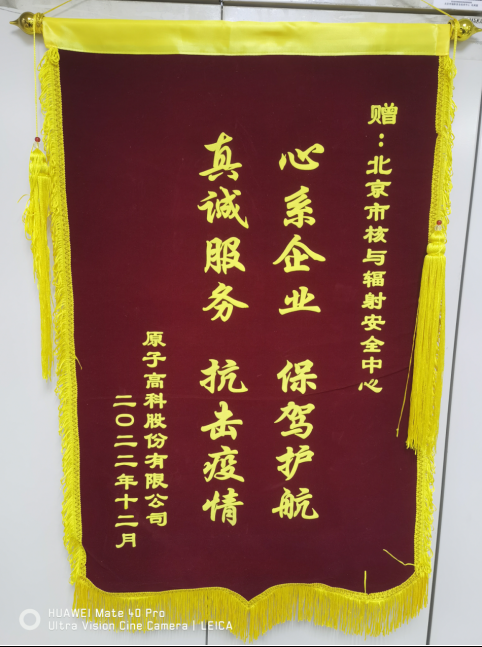 赠：北京市核与辐射安全中心
心系企业 保驾护航
真诚服务 抗击疫情
原子高科股份有限公司
二〇二二年十二月
HUAWEI Mate 40 Pro
Ultra Vision Cine Camera | LEICA